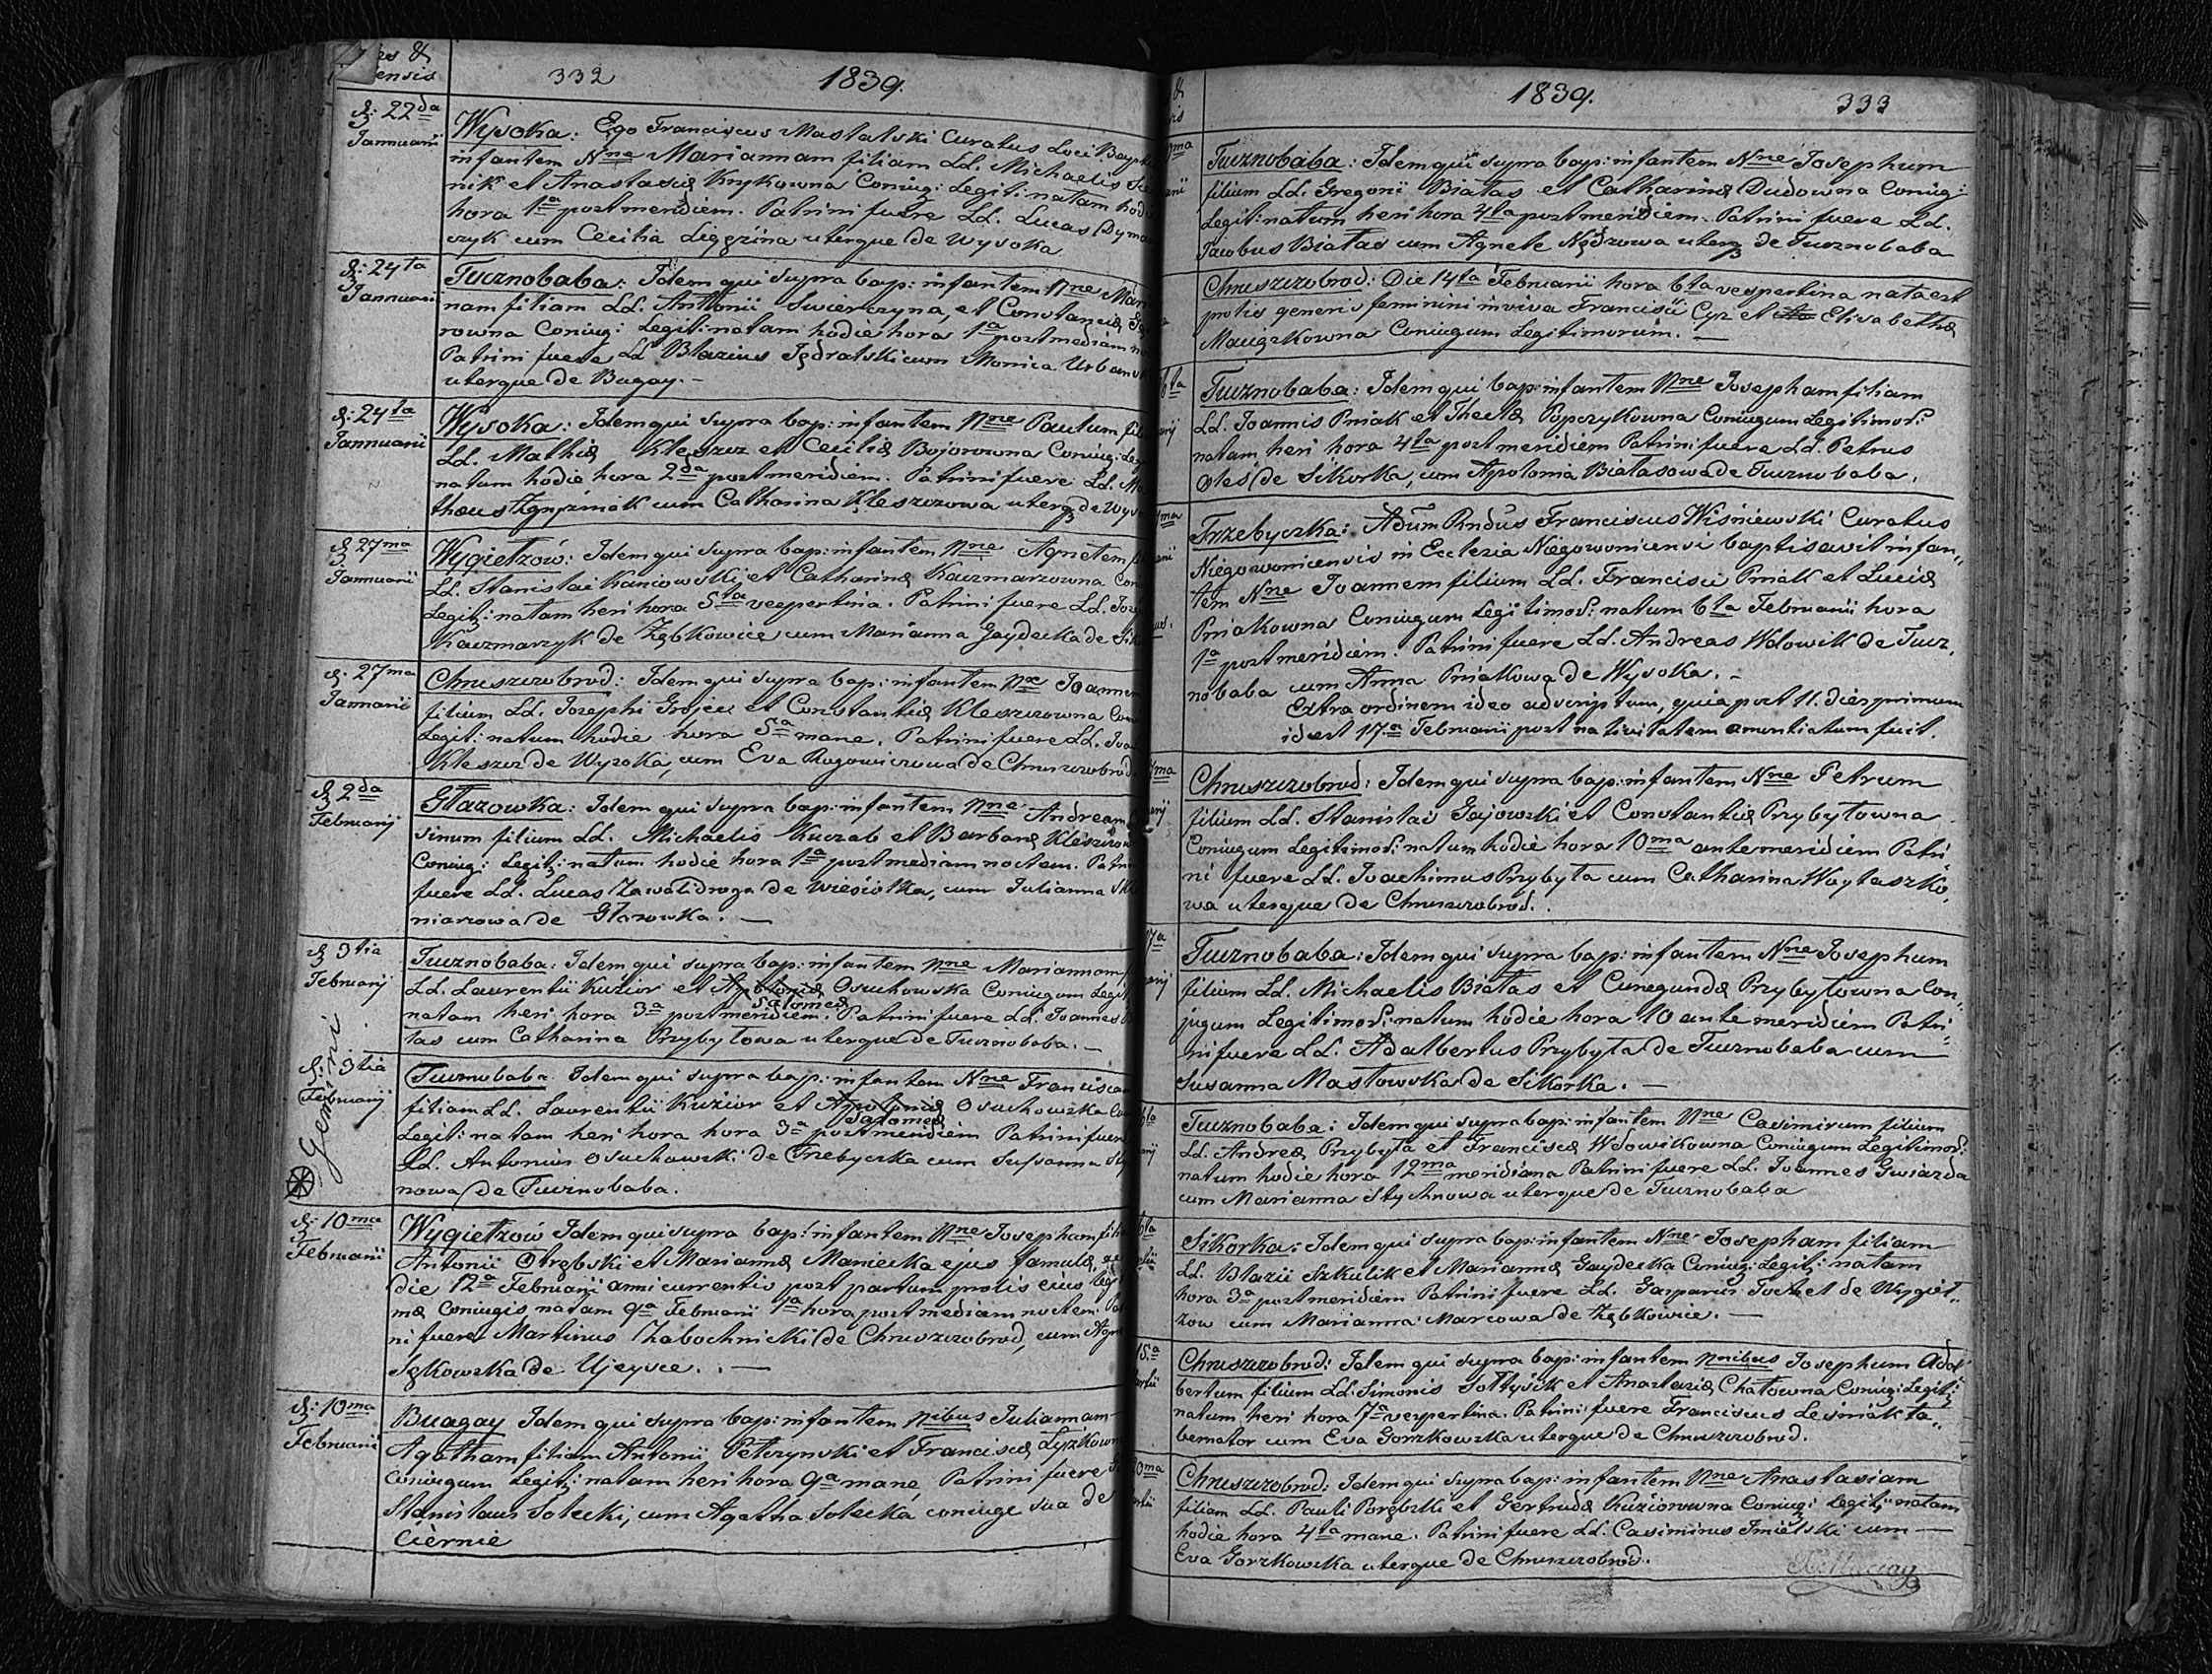 es &
ensis
332
1839.
d: 22da
Jannuarii
Wysoka: Ego Franciscus Mastalski Curatus Loci Bapt
infantem Nne Mariannam filiam LL. Michaelis
nik et Anastasiæ Knykowna Coniug: Legit: natam hod
hora 1a post meridiem. Patrini fuere LL. Lucas Dyma
czyk cum Cecilia uterque de Wysoka
d: 24ta
Jannuarii
Tucznobaba: Idem qui supra bap: infantem Nne Mari
nam filiam LL. Antonii Swierczyna, et Constanciæ
rowna Coniug: Legit: natam hodie hora 1a post mediam
Patrini fuere LL Blazius Jędralski cum Monica Urban
uterque de Bugay. –
d: 24ta
Jannuarii
Wysoka: Idem qui supra bap: infantem Nne Paulum fil
LL. Mathiæ Kleszcz et Ceciliæ Bojorowna Coniug: Leg
natum hodie hora 2da post meridiem. Patrini fuere LL. Ma
thæus cum Catharina Kleszczowa uterq de Wys
d 27ma
Jannuarii
Wygiełzów: Idem qui supra bap: infantem Nne Agnetem f
LL. Stanislai Kaniowski et Catharinæ Kaczmarzowna Con
Legit: natam heri hora 5ta vespertina. Patrini fuere LL. Jos
Kaczmarzyk de Ząbkowice cum Marianna Gaydecka de Sik
d. 27ma
Jannuarii
Chruszczobrod: Idem qui supra bap: infantem Nne Joannem
filium LL. Josephi Grojec et Constantiæ Kleszczowna Con
Legit: natum hodie hora 5a mane. Patrini fuere LL. Joa
Kleszcz de Wysoka, cum Eva Rogowiczowa de Chruszczobrod
d 2da
Februarij
Głazowka: Idem qui supra bap: infantem Nne Andream
sinum filium LL. Michaelis Kuczab et Barbaræ Kleszczow
Coniug: Legit: natum hodie hora 1a post mediam noctem. Patri
fuere LL. Lucas Zawalidroga de Wiesiołka, cum Julianna Sk
niarzowa de Głazowka. —
d 3tia
Februarij
Tucznobaba: Idem qui supra bap: infantem Nne Mariannam f
LL. Laurentii Kuzior et Apoloniæ Osuchowska Coniugum Legit
Salomeæ
natam heri hora 3a post meridiem. Patrini fuere LL. Joannes
tas cum Catharina Przybyłowa uterque de Tucznobaba. –
Gemini
d: 3tia
Februarij
Tucznobaba Idem qui supra bap: infantem Nne Franciscam
filiam LL. Laurentii Kuzior et Apoloniæ Osuchowska Co
Salomeæ
Legit: natam heri hora hora 3a post meridiem Patrini fuere
LL. Antonius Osuchowski de Trzebyczka cum Susanna Sty
nowa de Tucznobaba.
d: 10ma
Februarii
Wygiełzów Idem qui supra bap: infantem Nne Josepham fili
Antonii Otrębski et Mariannæ Maniecka ejus famulæ,
die 12a Februarii anni currentis post partum prolis ejus leg
mæ Coniugis natam 9a Februarii 1a hora post mediam noctem. Pat
ni fuere Martinus Zabochnicki de Chruszczobrod, cum Agne
Sękowska de Ujeysce. . —
d: 10ma
Februarii
Buagay Idem qui supra bap: infantem Nnibus Juliannam
Agatham filiam Antonii Pełczynski et Franciscæ Lyżkown
Coniugum Legit: natam heri hora 9a mane, Patrini fuere
Stanislaus Solecki, cum Agatha Solecka coniuge sua de
Ciernie
1839.
333
Tucznobaba: Idem qui supra bap: infantem Nne Josephum
filium LL. Gregorii Białas et Catharinæ Dudowna Coniug:
Legit: natum heri hora 4ta post meridiem. Patrini fuere LL.
Jacobus Białas cum Agnete Nędzowa uterq de Tucznobaba
Chruszczobrod: Die 14ta Februarii hora 6ta vespertina nata est
prolis generis feminini inviva Francisci Cyz et Elisabethæ
Mauczkowna Coniugum Legitimorum. —
Tucznobaba: Idem qui bap: infantem Nne Josepham filiam
LL. Joannis Pniak et Theclæ Popczykowna Coniugum Legitimor:
natam heri hora 4ta post meridiem Patrini fuere LL. Petrus
Oleś de Sikorka, cum Apolonia Białasowa de Tucznobaba.
Trzebyczka: Adum Rndus Franciscus Wiśniewski Curatus
Niegowonicensis in Ecclesia Niegowonicensi baptisavit infan„
tem Nne Joannem filium LL. Francisci Pniak et Luciæ
Pniakowna Coniugum Legitimor: natum 6ta Februarii hora
1a post meridiem. Patrini fuere LL. Andreas Wdowik de Tucz„
nobaba cum Anna Pniakowa de Wysoka. –
Extra ordinem ideo adscriptum, quia post 11. dies primum
id est 17a Februarii post nativitatem anuntiatum fuit.
Chruszczobrod: Idem qui supra bap: infantem Nne Petrum
filium LL. Stanislai Gajowski et Constantiæ Przybyłowna
Coniugum Legitimor: natum hodie hora 10ma ante meridiem Patri„
ni fuere LL. Joachimus Przybyła cum Catharina Woytaszko„
wa uterque de Chruszczobrod.
Tucznobaba: Idem qui supra bap: infantem Nne Josephum
filium LL. Michaelis Białas et Cunegundæ Przybyłowna Con„
jugum Legitimor: natum hodie hora 10 ante meridiem Patri„
ni fuere LL. Adalbertus Przybyła de Tucznobaba cum
Susanna Masłowska de Sikorka. —
Tucznobaba: Idem qui supra bap: infantem Nne Casimirum filium
LL. Andreæ Przybyła et Franciscæ Wdowikowna Coniugum Legitimor:
natum hodie hora 12ma meridiana Patrini fuere LL. Joannes Gwiazda
cum Marianna Stychnowa uterque de Tucznobaba
Sikorka: Idem qui supra bap: infantem Nne Josepham filiam
LL. Blazii Szkulik et Mariannæ Gaydecka Coniug: Legit: natam
hora 3a post meridiem Patrini fuere LL. Gasparus de Wygieł„
zow cum Marianna Marcowa de Ząbkowice. —
15.a
Chruszczobrod: Idem qui supra bap: infantem Nnibus Josephum Adal
bertum filium LL. Simonis Sołtysik et Anastasiæ Chałowna Coniug: Legit:
natum heri hora 7a vespertina. Patrini fuere Franciscus Leśniak ta„
bernator cum Eva Gorzkowska uterque de Chruszczobrod.
Chruszczobrod: Idem qui supra bap: infantem Nne Anastasiam
filiam LL. Pauli Porębski et Gertrudæ Kuziorowna Coniug: Legit: natam
hodie hora 4ta mane. Patrini fuere LL. Casimirus Imielski cum —
Eva Gorzkowska uterque de Chruszczobrod.